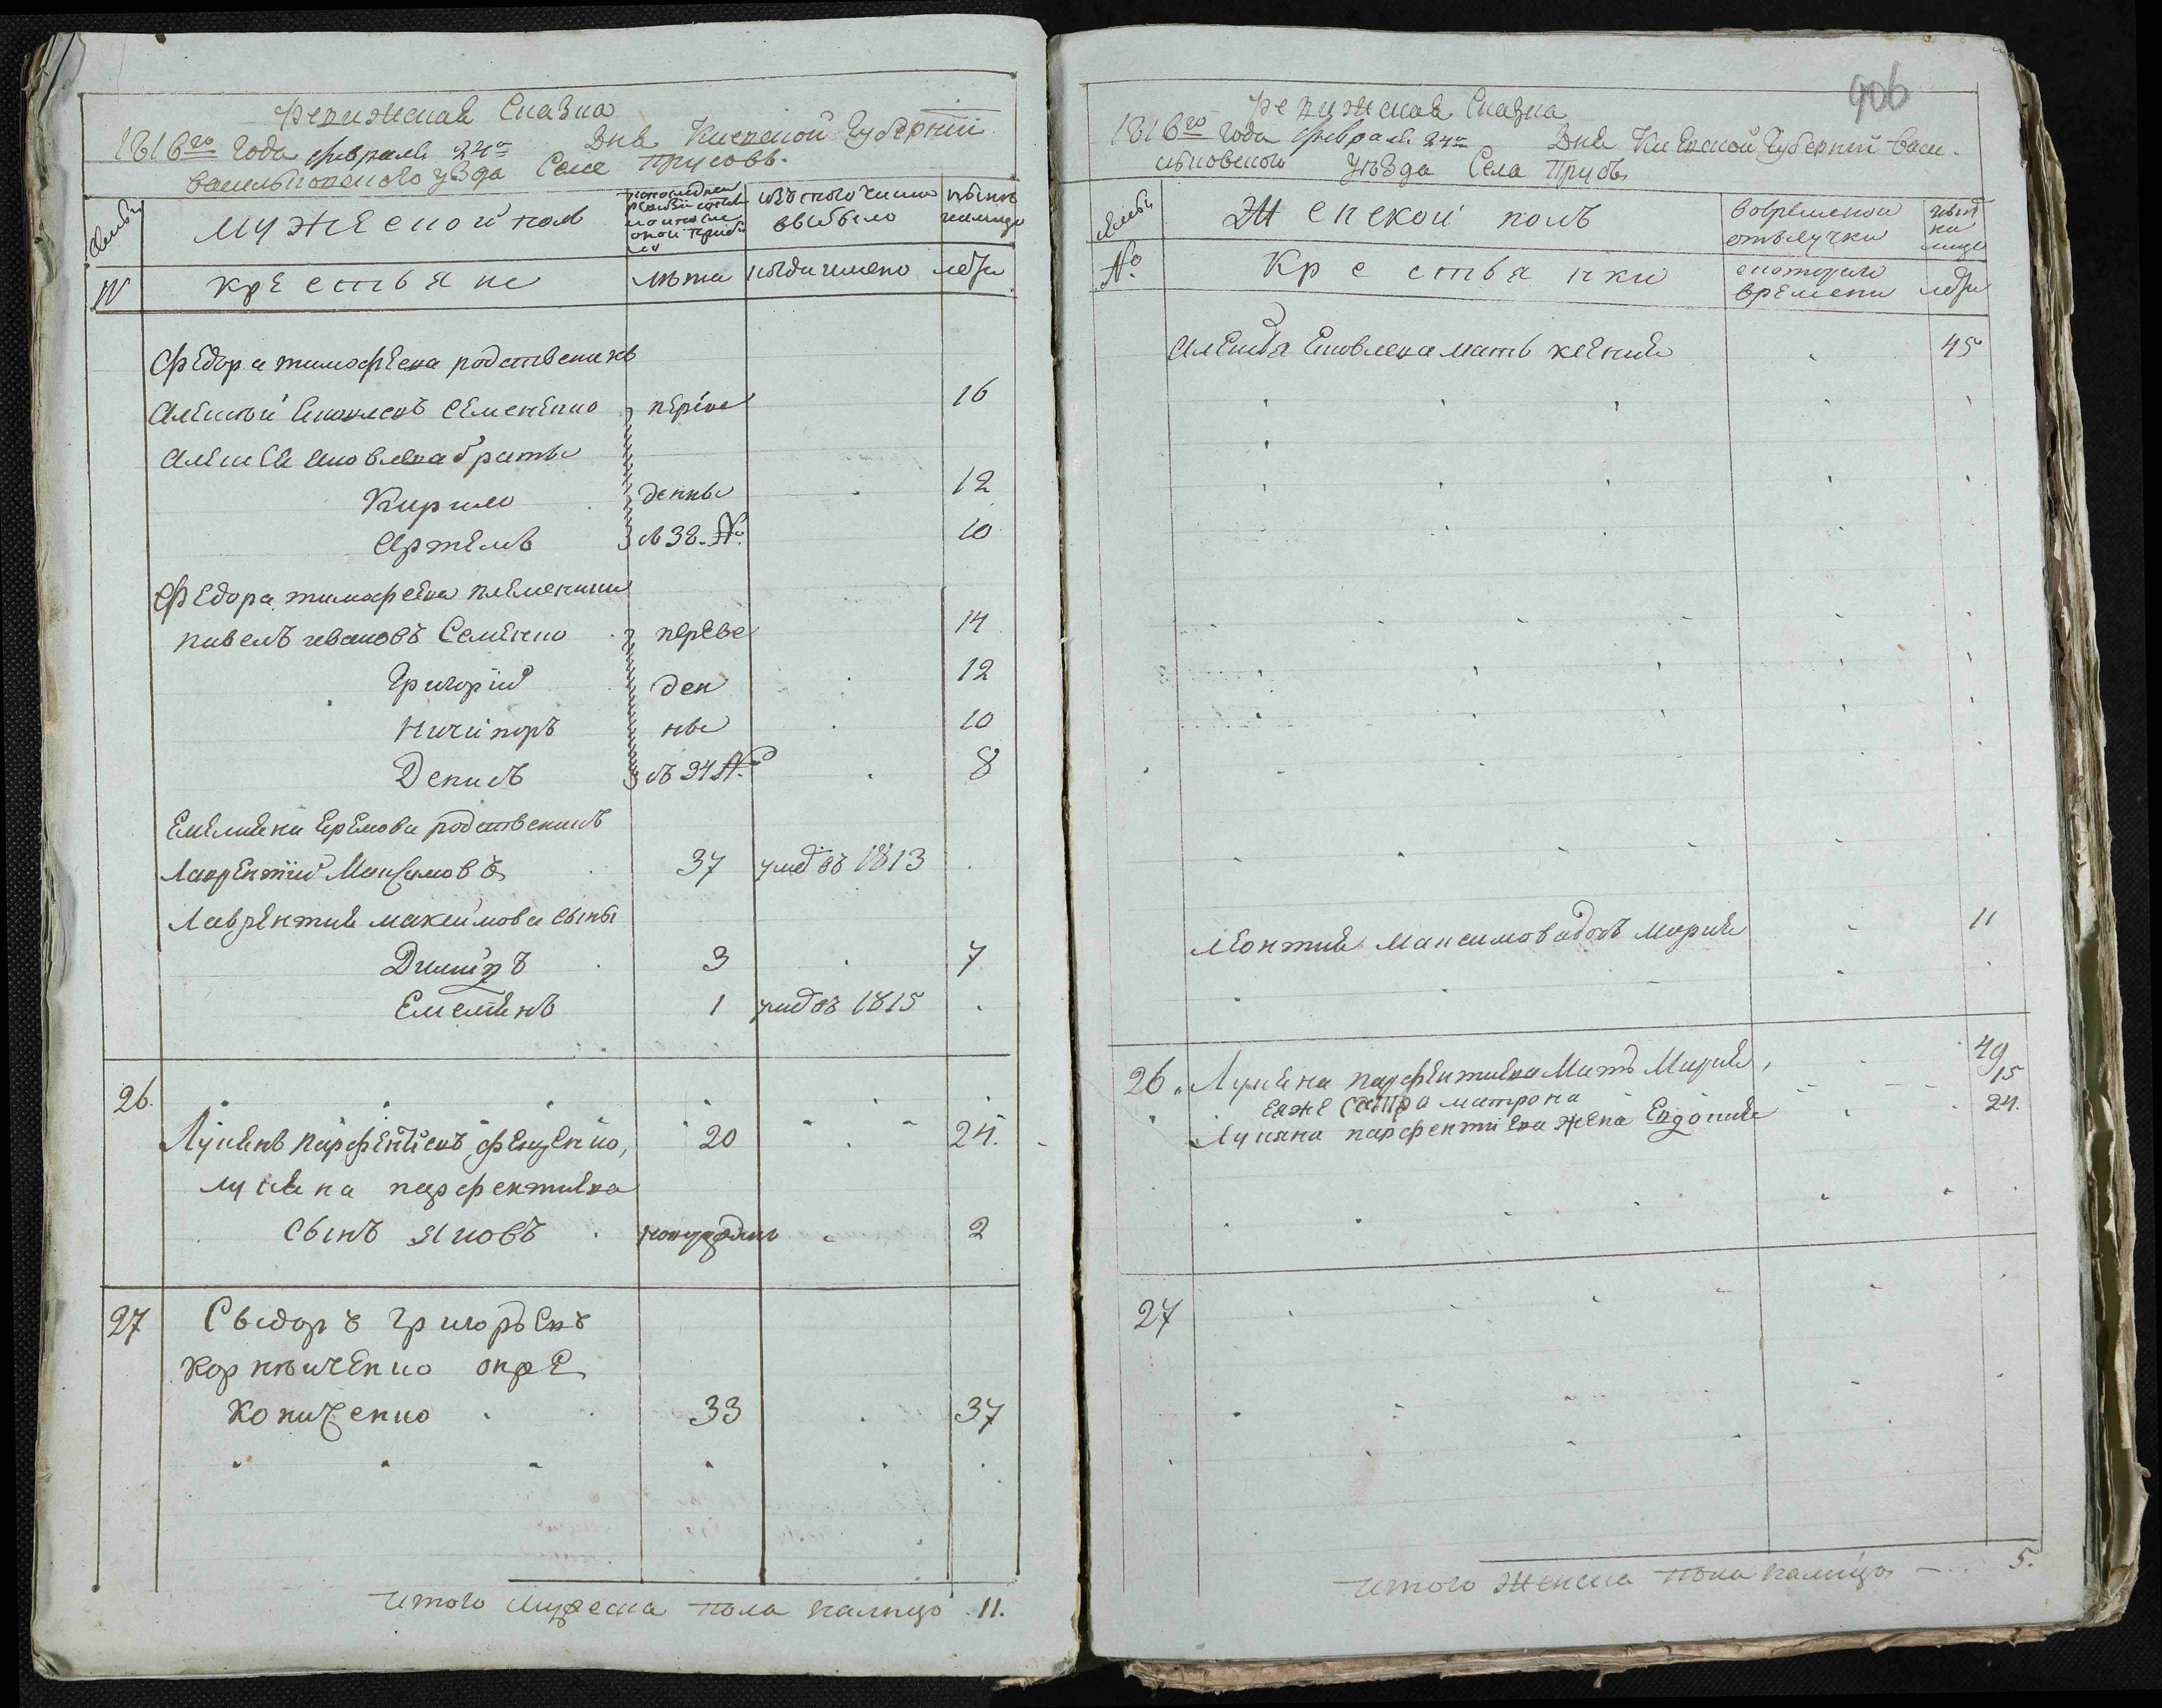 Ревижская Сказка
1816го года февраля 24го Дня Киевской Губернии
васильковского уезда Селе Трусовъ.
семьи
мужеской пол
изъ того числа выбыло
ныне налицо
N
крестьяне
лета
когда имено
лета
Федора тимофеева родственикъ
Алексей Яковлевъ Семененко переве 16
Алексея яковлева братья
Кирило денны 12
Артемъ съ 32. No. 10
Федора тимофеева племеники
павелъ ивановъ Семенко переве 14
Григорий ден 12
Ничипоръ ны 10
Денисъ съ 24 No 8
Емелияна Еремова родственикъ
Лаврентий Максимовъ 37 умеръ въ 1813
Лаврентия максимова сыны
3 7
Емелиянъ 1 умеръ въ 1815
26.
Лукянъ парфентиевъ фещенко, 20 24.
лукяна парфентиева
Сынъ яковъ новорожден 2
27 Сыдоръ григорьевъ
корниченко онже
Кониченко 33 37
итого мужеска пола налицо 11.
906
Ревижская Сказка
1816го года февраля 24го Дня Киевской Губернии васи-
льковского уезда Села Трусъ
семьи
Женской полъ
вовременой отлучки
ныне на лицо
No.
Крестьянки
скоторого времени
лета
Алексея Яковлева мать ксения 45
леонтия максимова дочь мария 11
26. Лукяна парфентиева Мать Мария, 49
Еяже сестра матрона 15
Лукяна парфентиева жена Евдокия 24.
27
итого женска пола налицо 5.